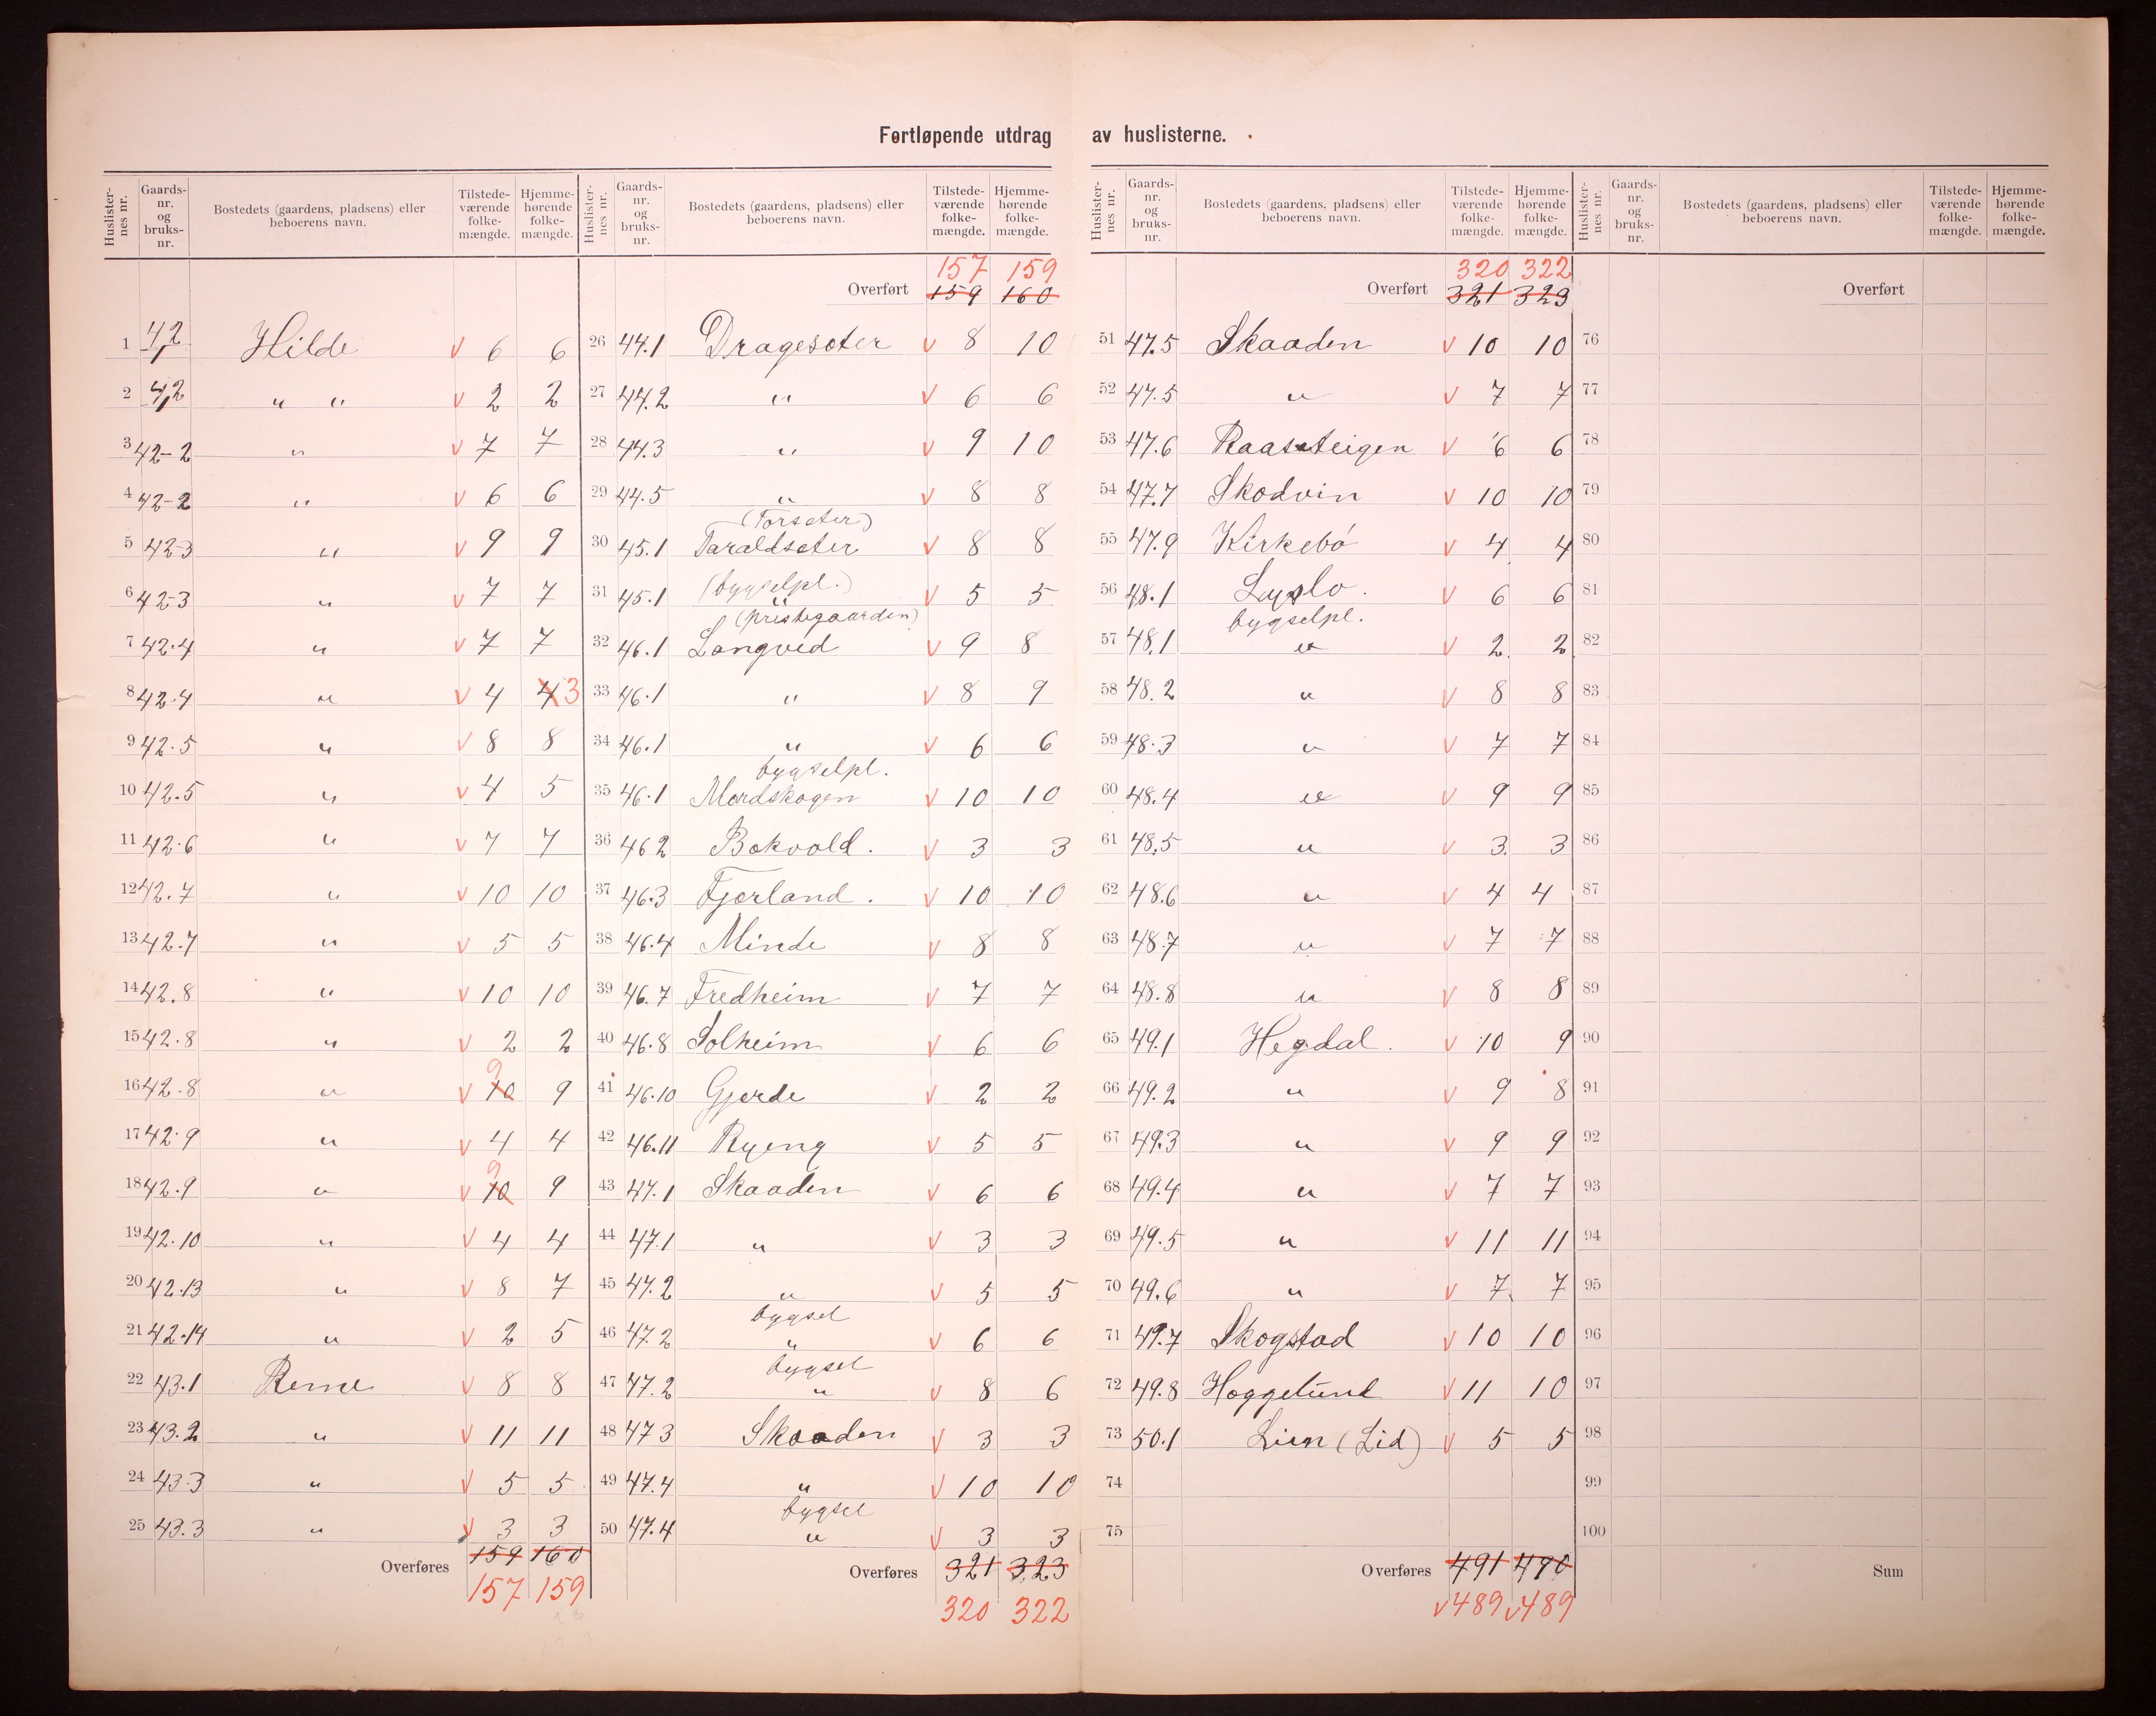 Fortløpende utdrag av huslisterne.
Huslisternes nr. Gaards-nr. og bruks-nr. Bostedets (gaardens, pladsens) eller beboerens navn. Tilstede-værende folke-mængde. Hjemme-hørende folke-mængde.
1 42,2 Hilde v 6 6
2 42,2 " " v 2 2
3 42-2 " v 7 7
4 42-2 " v 6 6
5 42-3 " v 9 9
6 42-3 " v 7 7
7 42.4 " v 7 7
8 42.4 " v 4 4 3
9 42.5 " v 8 8
10 42.5 " v 4 5
11 42.6 " v 7 7
12 42.7 " v 10 10
13 42.7 " v 5 5
14 42.8 " v 10 10
15 42.8 " v 2 2
16 42.8 " v 10 9 9
17 42.9 " v 4 4
18 42.9 " v 10 9 9
19 42.10 " v 4 4
20 42.13 " v 8 7
21 42.14 " v 2 5
22 43.1 Renne v 8 8
23 43.2 " v 11 11
24 43.3 " v 5 5
25 43.3 " v 3 3
Overføres 159 160
157 159
Huslisternes nr. Gaards-nr. og bruks-nr. Bostedets (gaardens, pladsens) eller beboerens navn. Tilstede-værende folke-mængde. Hjemme-hørende folke-mængde.
157 159
Overført 159 160
26 44.1 Dragesæter v 8 10
27 44.2 " v 6 6
28 44.3 " v 9 10
29 44.5 " v 8 8
(Torsæter)
30 45.1 Taraldsæter v 8 8
31 45.1 (bygselpl.) " v 5 5
(prestegaarden)
32 46.1 Langved v 9 8
33 46.1 " v 8 9
34 46.1 " v 6 6
bygselpl.
35 46.1 Mordskogen v 10 10
36 46 2 Bokvold. v 3 3
37 46.3 Fjærland. v 10 10
38 46.4 Minde v 8 8
39 46.7 Fredheim v 7 7
40 46.8 Solheim v 6 6
41 46.10 Gjerde v 2 2
42 46.11 Ryeng v 5 5
43 47.1 Skaaden v 6 6
44 47.1 " v 3 3
45 47.2 " v 5 5
bygsel
46 47.2 " v 6 6
bygsel
47 47.2 " v 8 6
48 47 3 Skaaden v 3 3
49 47.4 " v 10 10
bygsel
50 47.4 " v 3 3
Overføres 321 323
320 322
Huslisternes nr. Gaards-nr. og bruks-nr. Bostedets (gaardens, pladsens) eller beboerens navn. Tilstede-værende folke-mængde. Hjemme-hørende folke-mængde.
320 322
Overført 321 323
51 47.5 Skaaden v 10 10
52 47.5 " v 7 7
53 47.6 Raasateigen v 6 6
54 47.7 Skodvin v 10 10
55 47.9 Kirkebö v 4 4
56 48.1 Lyslo. v 6 6
bygselpl.
57 48.1 " v 2 2
58 48.2 " v 8 8
59 48.3 " v 7 7
60 48.4 " v 9 9
61 48.5 " v 3 3
62 48.6 " v 4 4
63 48.7 " v 7 7
64 48.8 " v 8 8
65 49.1 Hegdal. v 10 9
66 49.2 " v 9 8
67 49.3 " v 9 9
68 49.4 " v 7 7
69 49.5 " v 11 11
70 49.6 " v 7 7
71 49.7 Skogstad v 10 10
72 49.8 Hoggelund v 11 10
73 50.1 Lien (Lid) v 5 5
74
75
Overføres 491 490
v489 v489
Huslisternes nr. Gaards-nr. og bruks-nr. Bostedets (gaardens, pladsens) eller beboerens navn. Tilstede-værende folke-mængde. Hjemme-hørende folke-mængde.
Overført
76
77
78
79
80
81
82
83
84
85
86
87
88
89
90
91
92
93
94
95
96
97
98
99
100
Sum